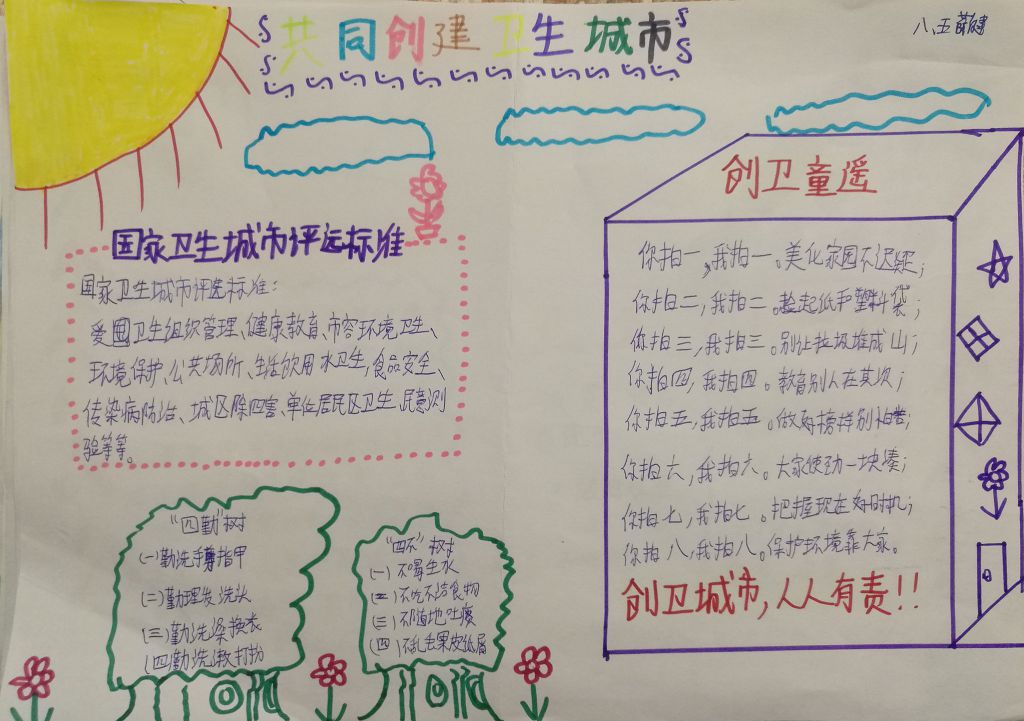 共同创建卫生城市
八、五 薛建
国家卫生城市评选标准
国家卫生城市评选标准:
爱国卫生组织管理、健康教育、市容环境卫生、
环境保护、公共场所、生活饮用水卫生,食品安全、
传染病防治、城区除四害、单位居民区卫生、民意测
验等等。
“四勤”树
(一)勤洗手剪指甲
(二)勤理发洗头
(三)勤洗澡换衣
(四)勤洗漱打扮
“四不”树
(一)不喝生水
(二)不吃不洁食物
(三)不随地吐痰
(四)不乱丢果皮纸屑
创卫童遥
你拍一,我拍一。美化家园不迟疑;
你拍二,我拍二。捡起纸和塑料袋;
你拍三,我拍三。别让垃圾堆成山;
你拍四,我拍四。教育别人在其次;
你拍五,我拍五。做好榜样别怕苦;
你拍六,我拍六。大家使劲一块凑;
你拍七,我拍七。把握现在好时机;
你拍八,我拍八。保护环境靠大家。
创卫城市,人人有责!!